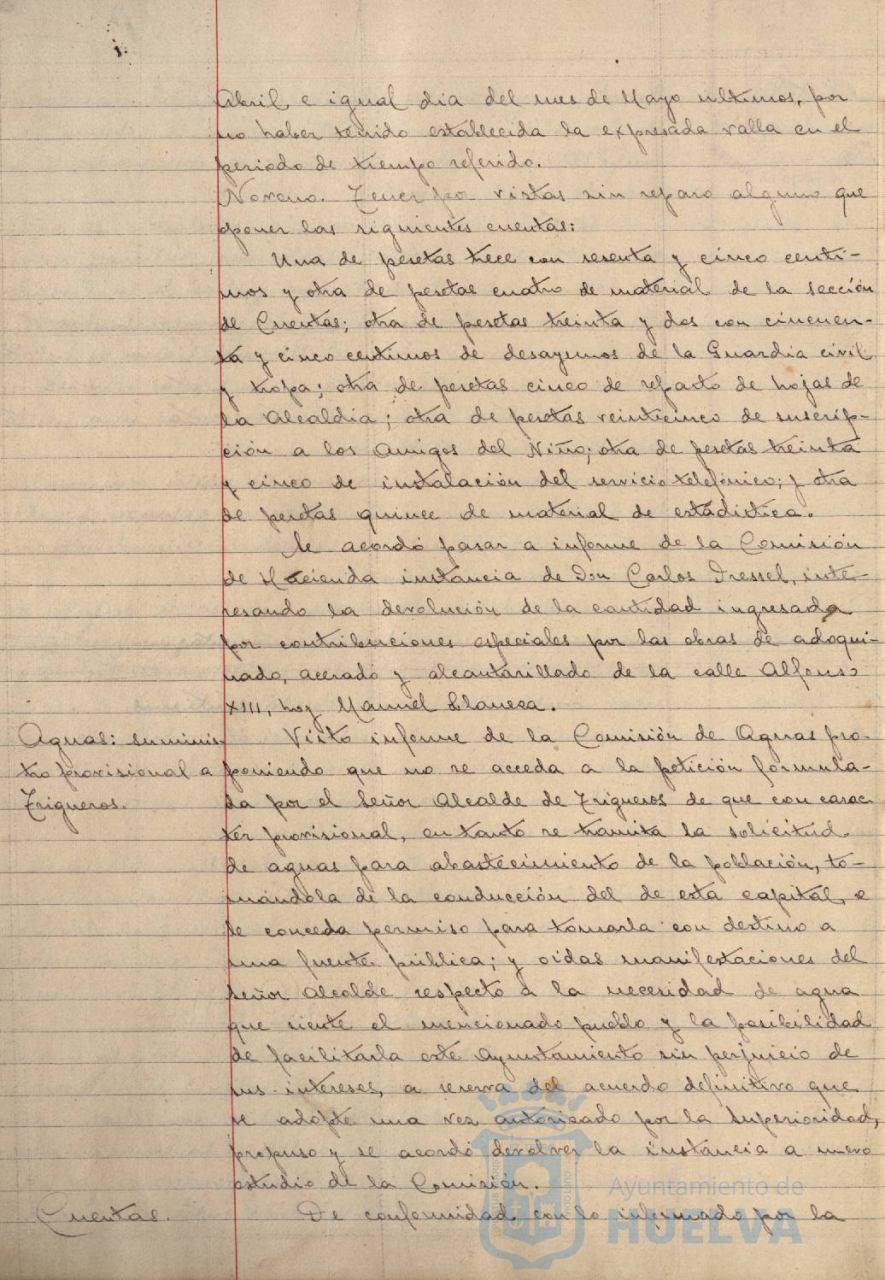 Abril e igual dia del mes de Mayo ultimos, por
no haber tenido establecida la expresada valla en el
periodo de tiempo referido.
Noveno. Tener por vistas sin reparo alguno que
oponer las siguientes cuentas:
Una de pesetas trece con sesenta y cinco centi-
mos y otra de pesetas cuatro de material de la sección
de Cuentas; otra de pesetas treinta y dos con cincuen-
ta y cinco centimos de desayunos de la Guardia civil
y tropa; otra de pesetas cinco de reparto de hojas de
la Alcaldia; otra de pesetas veinticinco de suscrip-
ción a los Amigos del Niño; otra de pesetas treinta
y cinco de instalación del servicio telefónico; y otra
de pesetas quince de material de estadistica.
Se acordó pasar a informe de la Comisión
de Hacienda instancia de Don Carlos Dressel, inte-
resando la devolución de la cantidad ingresada
por contribuciones especiales por las obras de adoqui-
nado, acerado y alcantarillado de la calle Alfonso
XIII, hoy Manuel Llaneza.
Aguas: suminis-
tro provisional a
Trigueros.
Visto informe de la Comisión de Aguas pro-
poniendo que no se acceda a la petición formula-
da por el Señor Alcalde de Trigueros de que con carac-
ter provisional, en tanto se tramita la solicitud
de aguas para abastecimiento de la población, to-
mándola de la conducción del de esta capital, e
se conceda permiso para tomarla con destino a
una fuente pública; y oidas manifestaciones del
Señor Alcalde respecto a la necesidad de agua
que siente el mencionado pueblo y la posibilidad
de facilitarla este Ayuntamiento sin perjuicio de
sus intereses, a reserva del acuerdo definitivo que
se adopte una vez autorizado por la Superioridad,
propuso y se acordó devolver la instancia a nuevo
estudio de la Comisión.
Cuentas.
De conformidad con lo informado por la
Ayuntamiento de
HUELVA